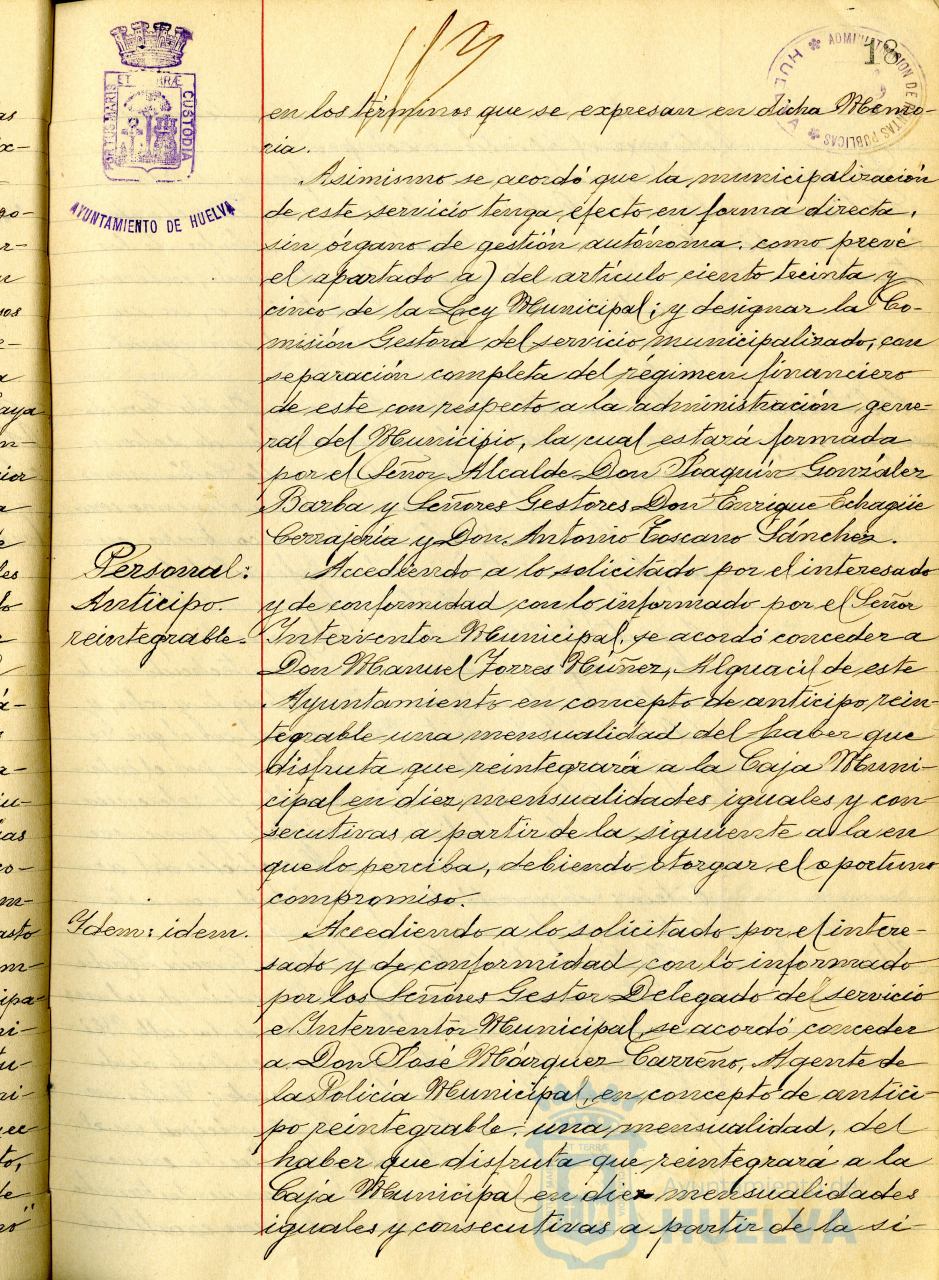 18
ADMINISTRACION DE RENTAS PUBLICAS
HUELVA
ET TERRÆ
PORTUS MARIS
CUSTODIA
AYUNTAMIENTO DE HUELVA
en los términos que se expresan en dicha Memo-
ria.
Asimismo se acordó que la municipalización
de este servicio tenga efecto en forma directa,
sin órgano de gestión autónoma, como prevé
el apartado a) del artículo ciento treinta y
cinco de la Ley Municipal; y designar la Co-
misión Gestora del servicio municipalizado, con
separación completa del régimen financiero
de este con respecto a la administración gene-
ral del Municipio, la cual estará formada
por el Señor Alcalde Don Joaquín González
Barba y Señores Gestores Don Enrique Echagüe
Cerrajería y Don Antonio Toscano Sánchez.
Personal:
Anticipo
reintegrable.
Accediendo a lo solicitado por el interesado
y de conformidad con lo informado por el Señor
Interventor Municipal, se acordó conceder a
Don Manuel Torres Núñez, Alguacil de este
Ayuntamiento en concepto de anticipo rein-
tegrable una mensualidad del haber que
disfruta que reintegrará a la Caja Muni-
cipal en diez mensualidades iguales y con
secutivas a partir de la siguiente a la en
que lo perciba, debiendo otorgar el oportuno
compromiso.
Idem: idem.
Accediendo a lo solicitado por el intere-
sado y de conformidad con lo informado
por los Señores Gestor Delegado del servicio
e Interventor Municipal, se acordó conceder
a Don José Márquez Carreño, Agente de
la Policía Municipal, en concepto de antici-
po reintegrable, una mensualidad, del
haber que disfruta que reintegrará a la
Caja Municipal en diez mensualidades
iguales y consecutivas a partir de la si-
Ayuntamiento de
HUELVA